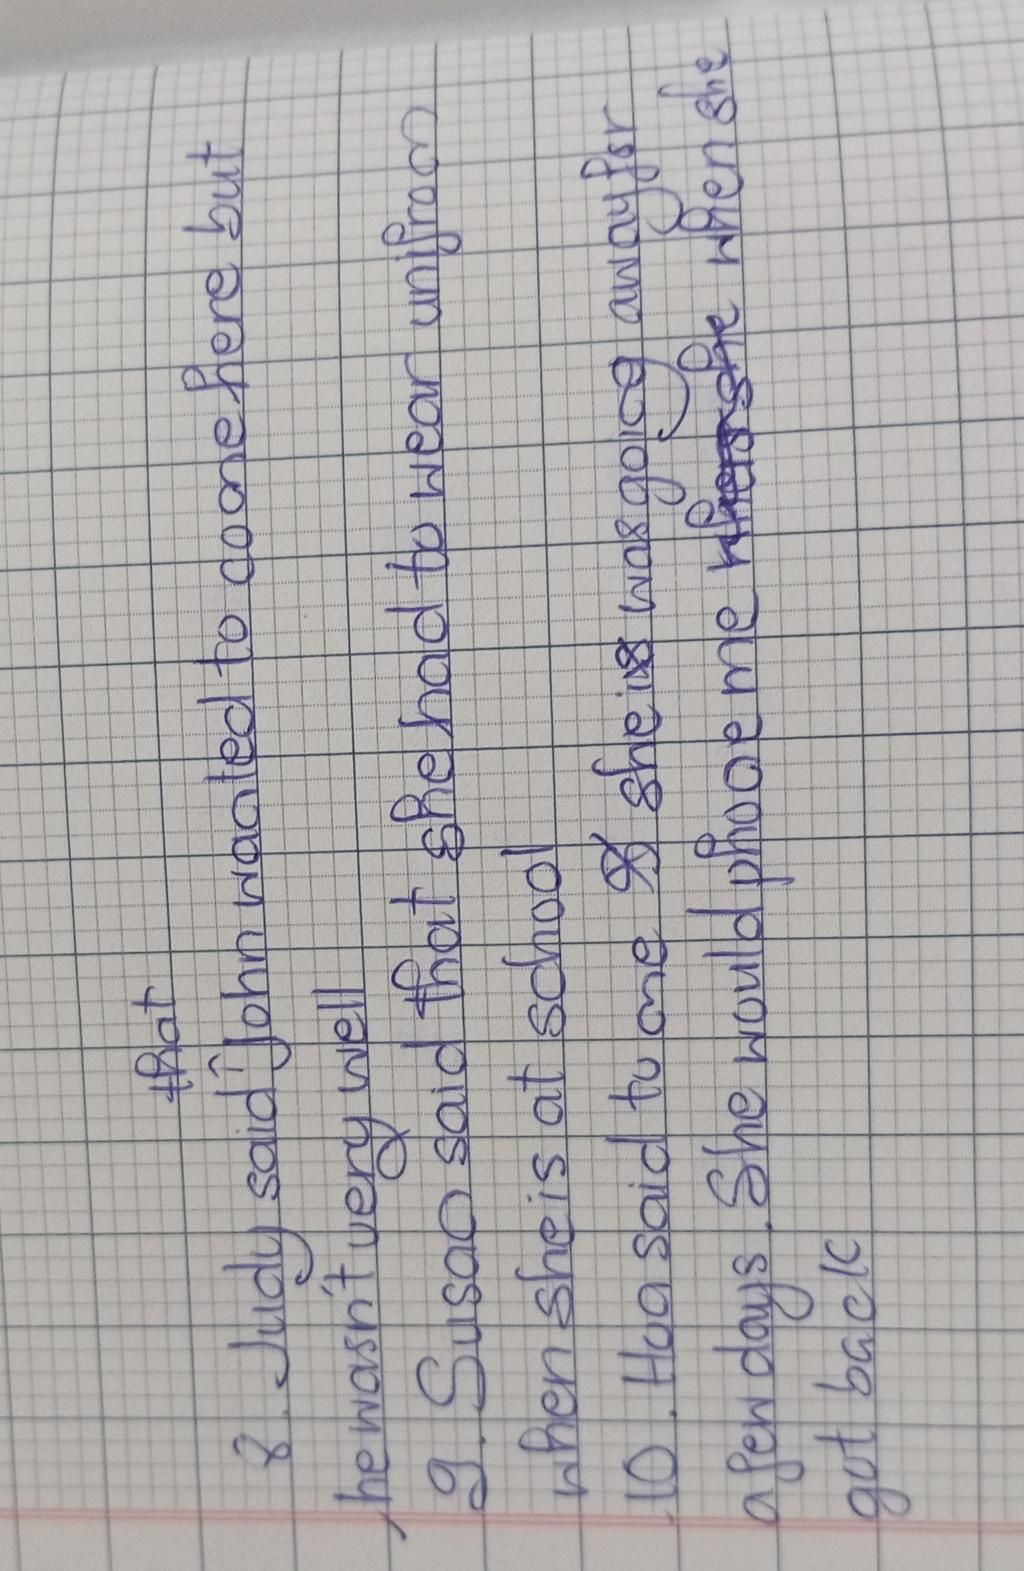 that
8. Judy said John wanted to come here but
he wasn't very well
9. Susan said that she had to wear unifrom
when she is at school
10. Hoa said to me she is was going away for
a few days. She would phone me when she when she
got back